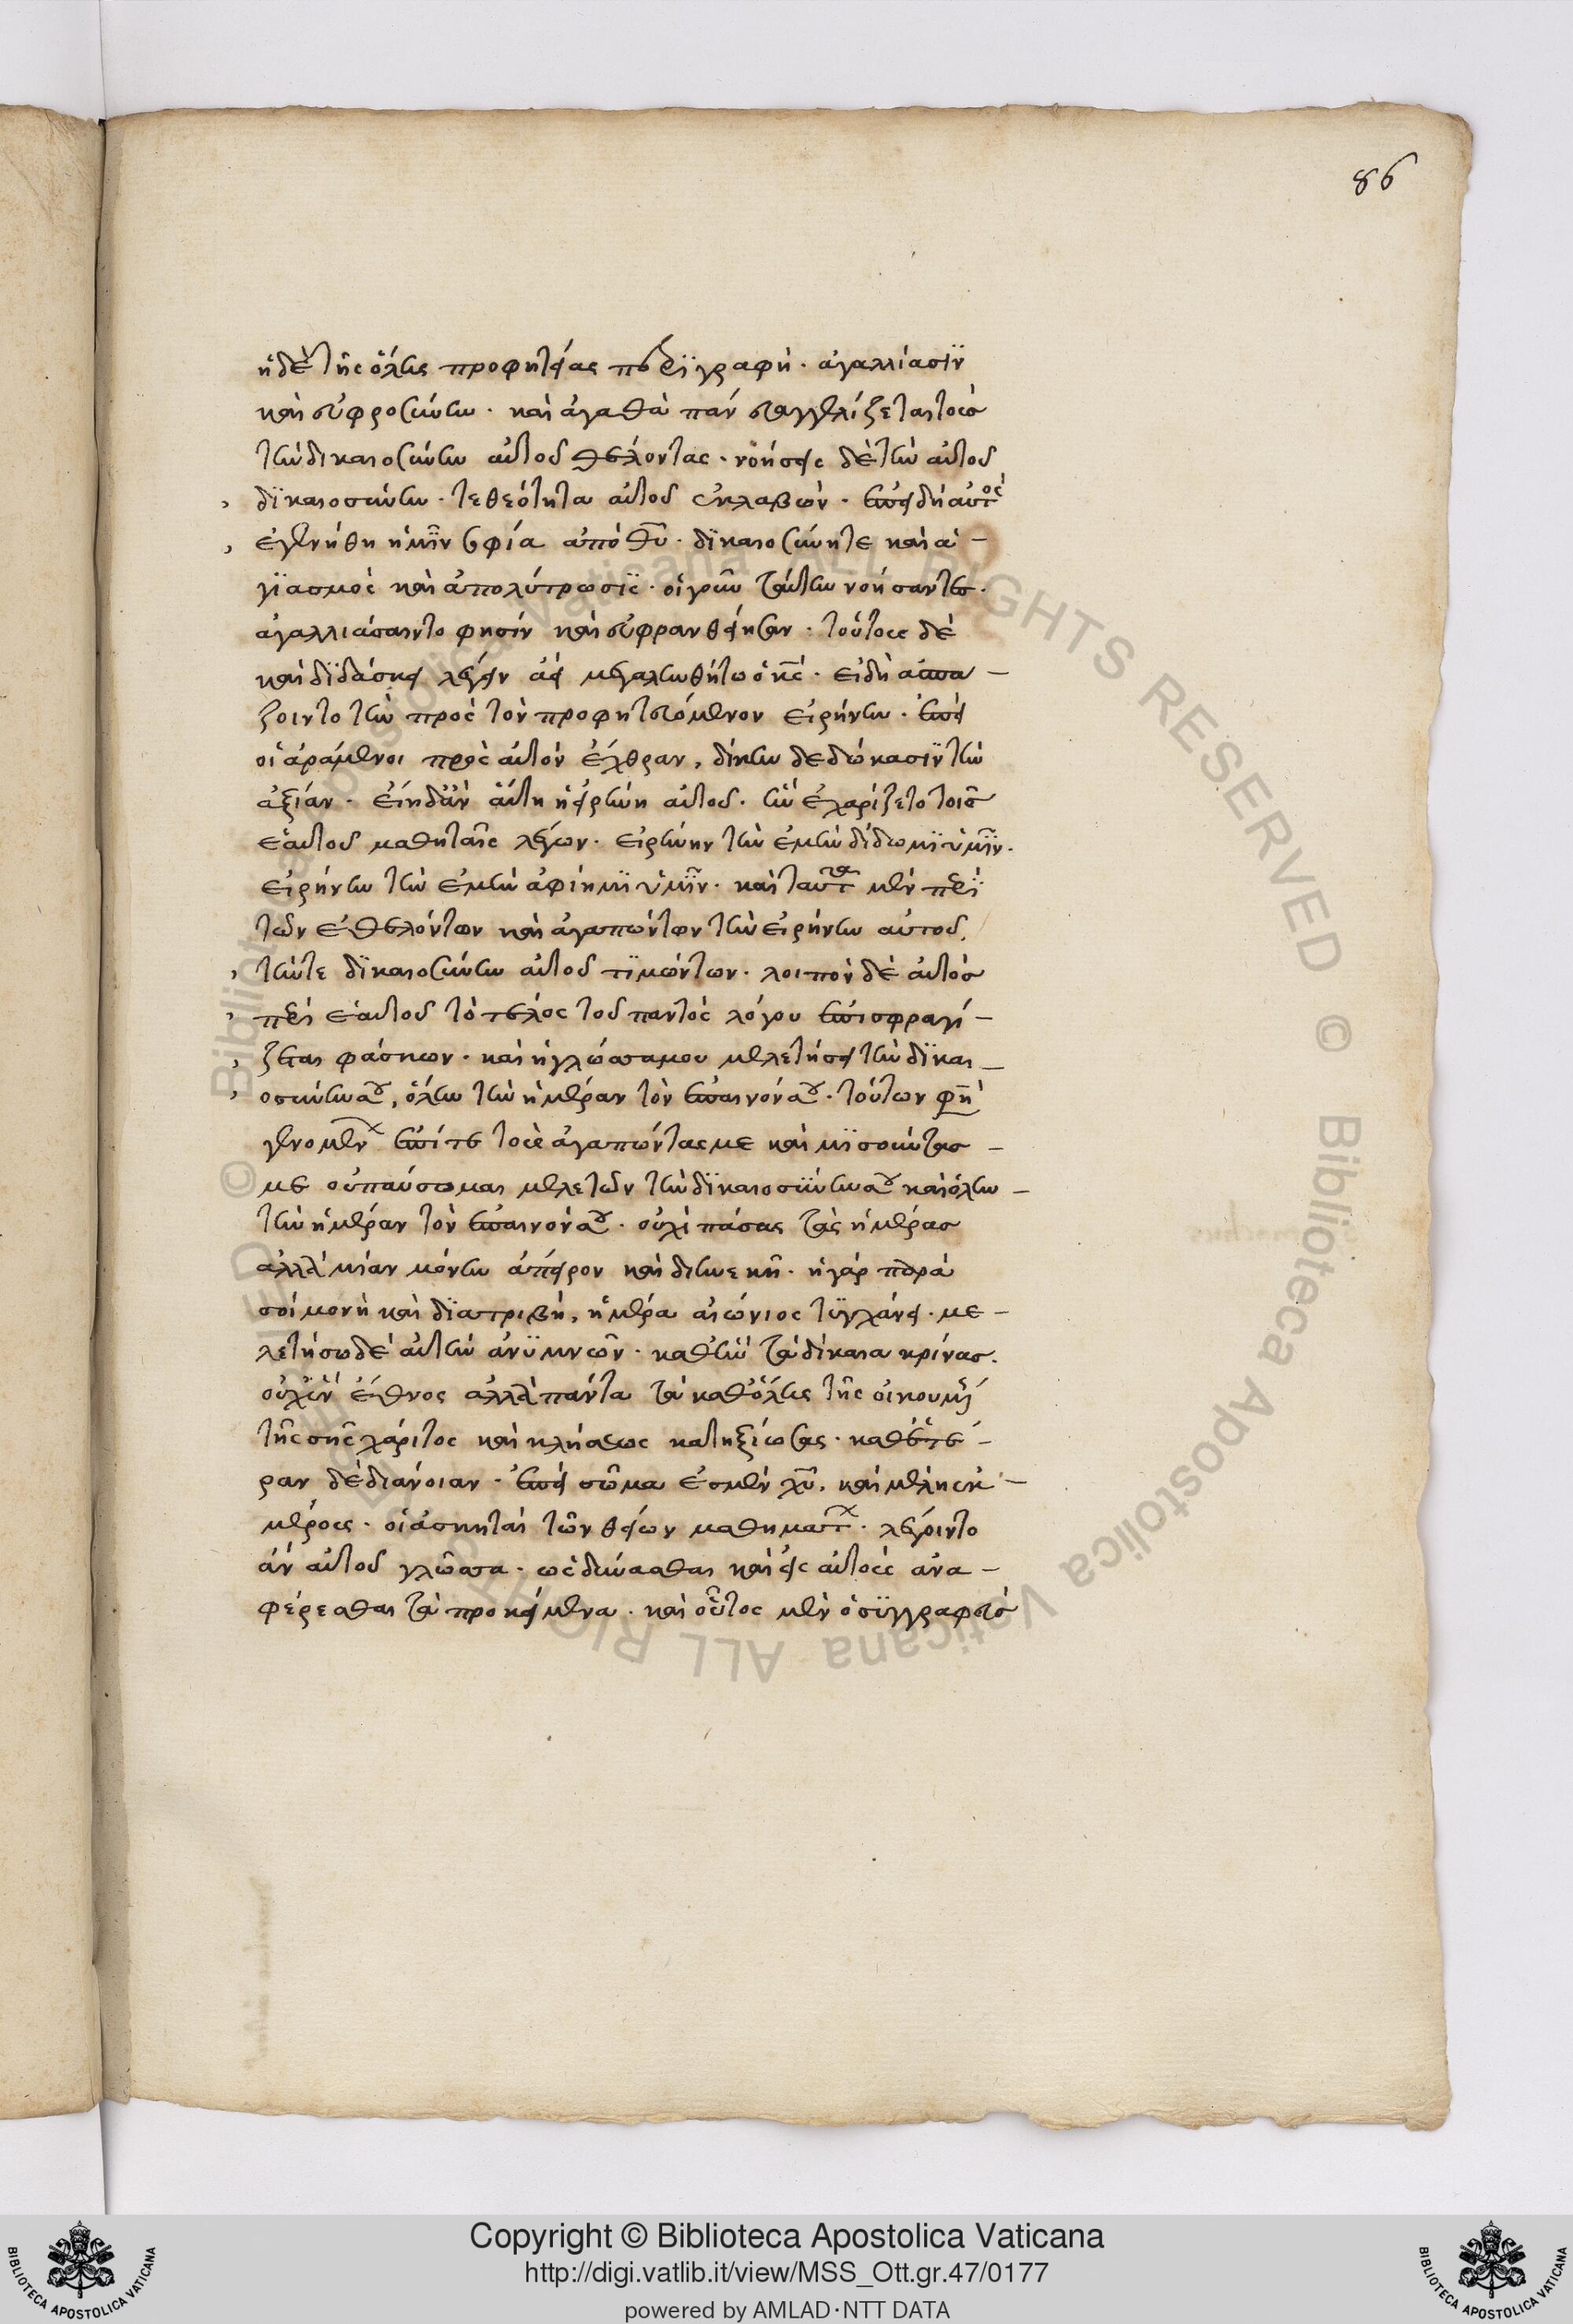 86
ἡ δὲ τῆς ὅλης προφητείας περιγραφὴ · ἀγαλλίασιν
καὶ εὐφροσύνην · καὶ ἀγαθὰ πάν εὐαγγελίζεται τοὺσ
τὴν δικαιοσύνην αὐτοῦ θέλοντας · νοήσεις δὲ τὴν αὐτοῦ
δικαιοσύνην · τε θεότητα αὐτοῦ ἐκλαβών · ἐπεὶ δὴ αὐτὸς
ἐγενήθη ἡμῖν σοφία ἀπὸ θυ · δικαιοσύνη τε καὶ ἁ-
γιασμὸς καὶ ἀπολύτρωσις · οἱ γοῦν ταύτην νοήσαντες ·
ἀγαλλιάσαιντο φησὶν καὶ εὐφρανθείησαν · τούτοις δὲ
καὶ διδάσκει λέγειν ἀεὶ μεγαλυνθήτω ὁ κς · εἰ δὴ ἀσπά-
ζοιντο τὴν πρὸς τὸν προφητευόμενον εἰρήνην · ἐπεὶ
οἱ ἀράμενοι πρὸς αὐτὸν ἔχθραν, δίκην δεδώκασιν τὴν
ἀξίαν · εἴη δἂν αὕτη ἡ εἰρήνη αὐτοῦ · ἣν ἐχαρίζετο τοῖσ
ἑαυτοῦ μαθηταῖς λέγων · εἰρήνην τὴν ἐμὴν δίδωμι ὑμῖν ·
εἰρήνην τὴν ἐμὴν ἀφίημι ὑμῖν · καὶ ταῦτα μὲν περὶ
τῶν ἐθελόντων καὶ ἀγαπώντων τὴν εἰρήνην αὐτοῦ,
τήν τε δικαιοσύνην αὐτοῦ τιμώντων · λοιπὸν δὲ αὐτὸσ
περὶ ἑαυτοῦ τὸ τέλος τοῦ παντὸς λόγου ἐπισφραγί-
ζεται φάσκων · καὶ ἡ γλῶσσα μου μελετήσει τὴν δικαι-
οσύνην σου, ὅλην τὴν ἡμέραν τὸν ἔπαινόν σου · τούτων φη
γενομένων ἐπί τε τοὺς ἀγαπῶντας με καὶ μισοῦντασ -
με οὐ παύσομαι μελετῶν τὴν δικαιοσύνην σου καὶ ὅλην -
τὴν ἡμέραν τὸν ἔπαινόν σου · οὐχὶ πάσας τὰς ἡμέρασ
ἀλλὰ μίαν μόνην ἄπειρον καὶ διηνεκῆ · ἡ γὰρ παρὰ
σοὶ μονὴ καὶ διατριβή, ἡμέρα αἰώνιος τυγχάνει · με-
λετήσω δὲ αὐτὴν ἀνυμνῶν · καθ ἣν τὰ δίκαια κρίνασ ·
οὐχ ἓν ἔθνος ἀλλὰ πάντα τὰ καθ ὅλης τῆς οἰκουμένης
τῆς σῆς χάριτος καὶ κλήσεως κατηξίωσας · καθ ἑτέ-
ραν δὲ διάνοιαν · ἐπεὶ σῶμα ἐσμὲν χυ, καὶ μέλη ἐκ -
μέρους · οἱ ἀσκηταὶ τῶν θείων μαθημάτων · λέγοιντο
ἂν αὐτοῦ γλῶσσα · ὡς δύνασθαι καὶ εἰς αὐτοὺς ἀνα-
φέρεσθαι τὰ προκείμενα · καὶ οὗτος μὲν ὁ συγγραφεὺσ
Copyright © Biblioteca Apostolica Vaticana
http://digi.vatlib.it/view/MSS_Ott.gr.47/0177
powered by AMLAD·NTT DATA